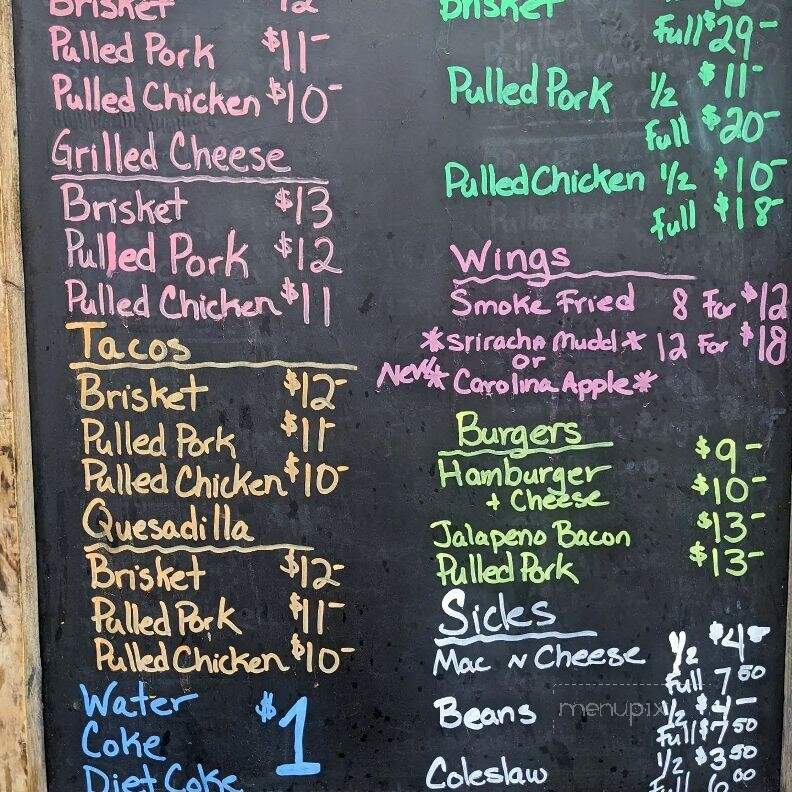 Brisket 12
Pulled Pork $11-
Pulled Chicken $10-
Grilled Cheese
Brisket $13
Pulled Pork $12
Pulled Chicken $11
Tacos
Brisket $12-
Pulled Pork $11-
Pulled Chicken $10-
Quesadilla
Brisket $12-
Pulled Pork $11-
Pulled Chicken $10-
Water
Coke $1
Diet Coke
Brisket
Full $29-
Pulled Pork 1/2 $11-
Full $20-
Pulled Chicken 1/2 $10-
Full $18-
Wings
Smoke Fried 8 For $12
*Sriracha Mudd* 12 For $18
or
New* Carolina Apple*
Burgers $9-
Hamburger
+ Cheese $10-
Jalapeno Bacon $13-
Pulled Pork $13-
Sicks
Mac N Cheese 1/2 $4-
Full 7 50
Beans 1/2 $4-
Full $7 50
Coleslaw 1/2 $3 50
Full 6 00
menupix